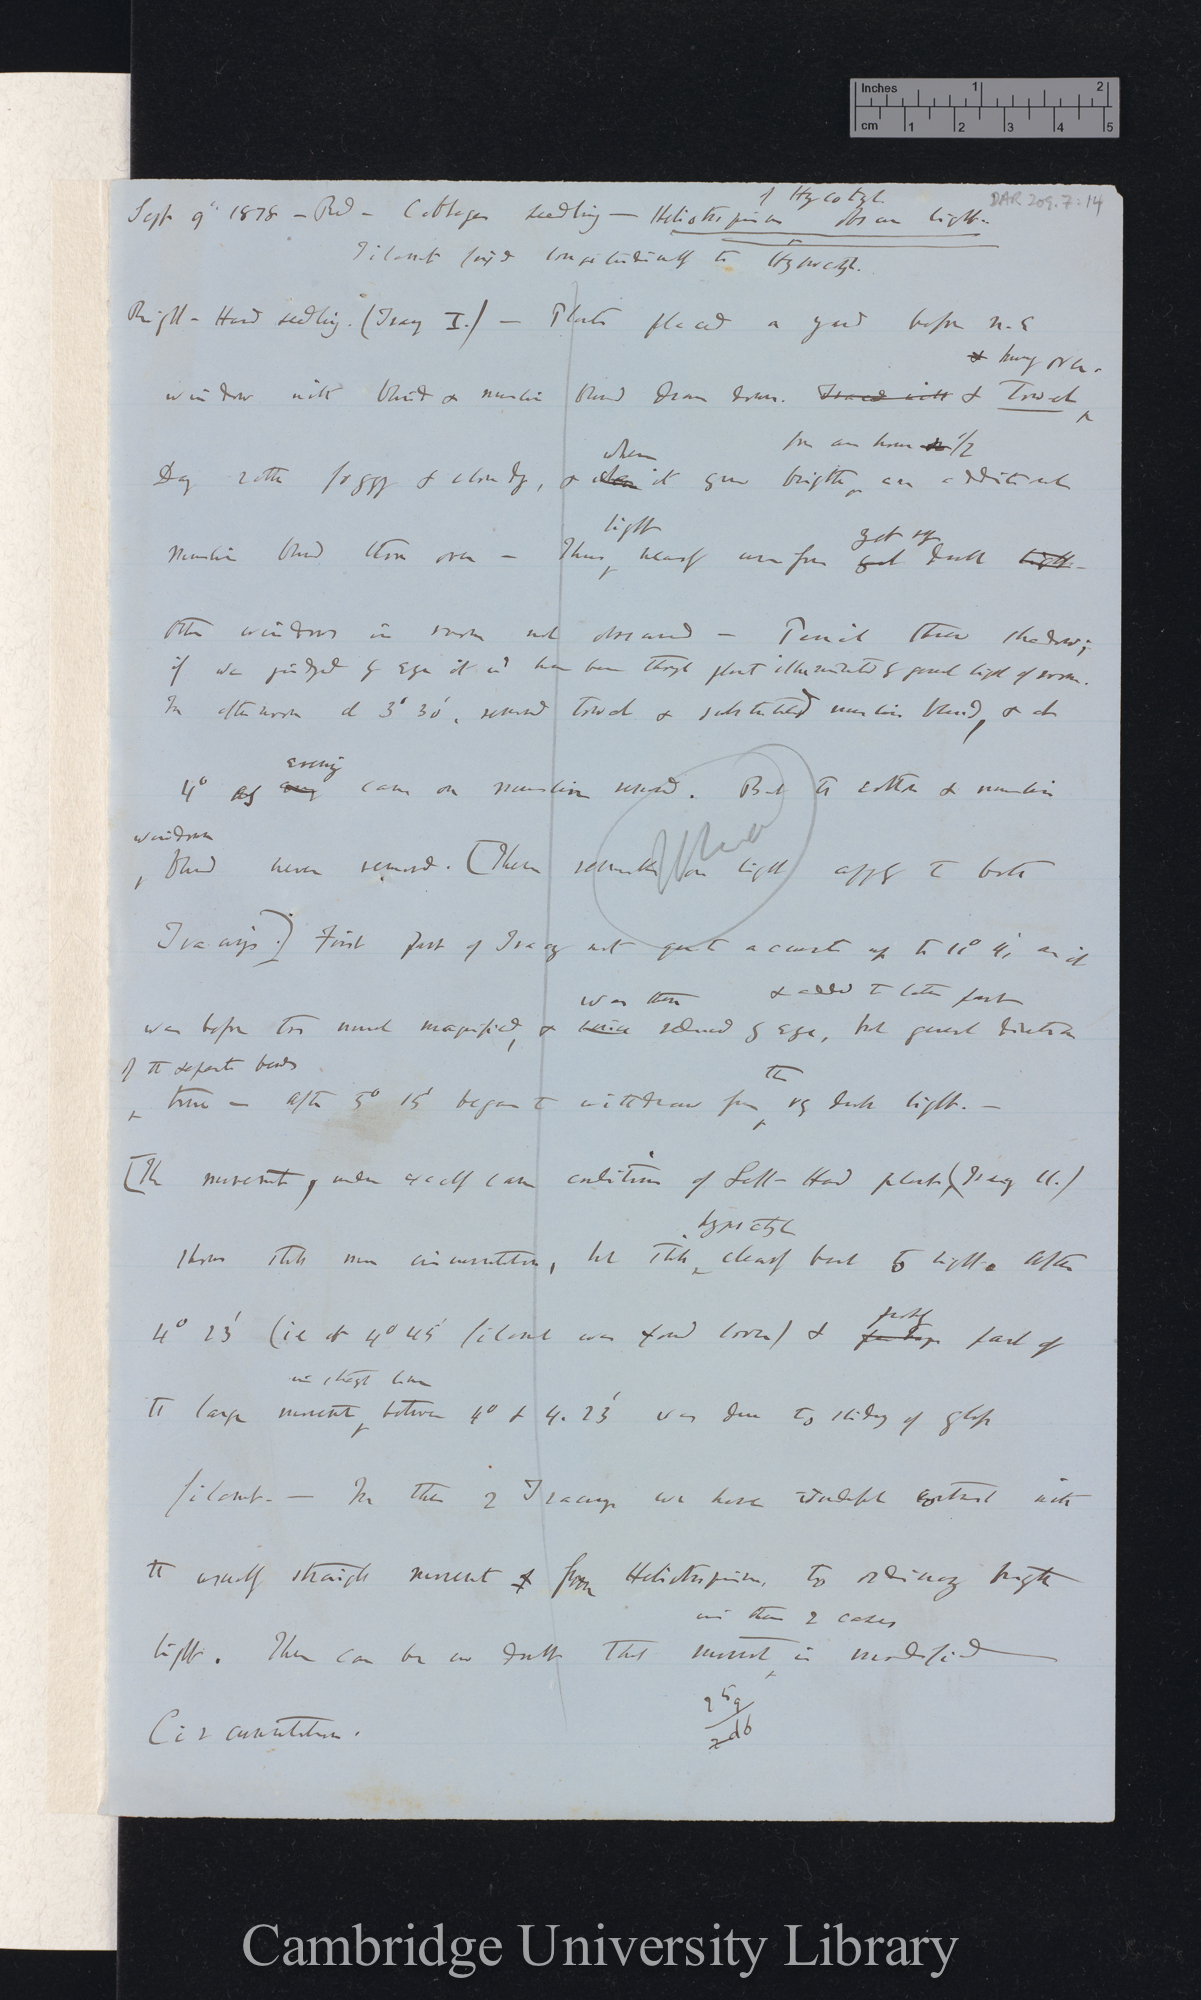 Inches 1 2
cm 1 2 3 4 5
DAR 209.7:14
of Hypocotyl
Sept 9° 1878 — Red — Cabbage seedling — Heliotropism obscure light.
Filament fixed longitudinally to Hypocotyl.
Right-Hand seedling. (Tracing I.) — Plants placed a yard before N.E
& hung over.
window with blind & muslin blind drawn down. & Towel
for an hour 1/2
when
Day rather foggy & cloudy, & it grew brighter, an additional
light
get up
muslin blind thrown over — Thus, nearly uniform dull light
Other windows in room not obscured — Pencil threw shadow;
if we judged by eye it wd have been thought plant illuminated by general light of room.
In afternoon at 3° 30', removed towel & substituted muslin blind, & at
evening
4° as came on muslin removed. But the cotton & muslin
window
blind never removed. [These remarks on light apply to both
Used
Tracings.] First part of Tracing not quite accurate up to 11° 4', as it
was then & added to later part
was before too much magnified, & reduced by eye, but general direction
of the separate bends
the
true — After 5° 15' began to withdraw from, very dull light. —
[The movement, under exactly same conditions of Left-Hand plant (Tracing II.)
hypocotyl
shows still more circumnutation, but still, clearly bent to light. After
4° 23' (ie at 4° 45' filament was found loose) &
partly
part of
in straight line
the large movement, between 4° & 4. 23' was due to sliding of glass
filament. — In these 2 Tracings we have wonderful contrast with
the usually straight movement from Heliotropism, to ordinary bright
in these 2 cases
light. There can be no doubt that movement, is modified
Circumnutation.
Cambridge University Library